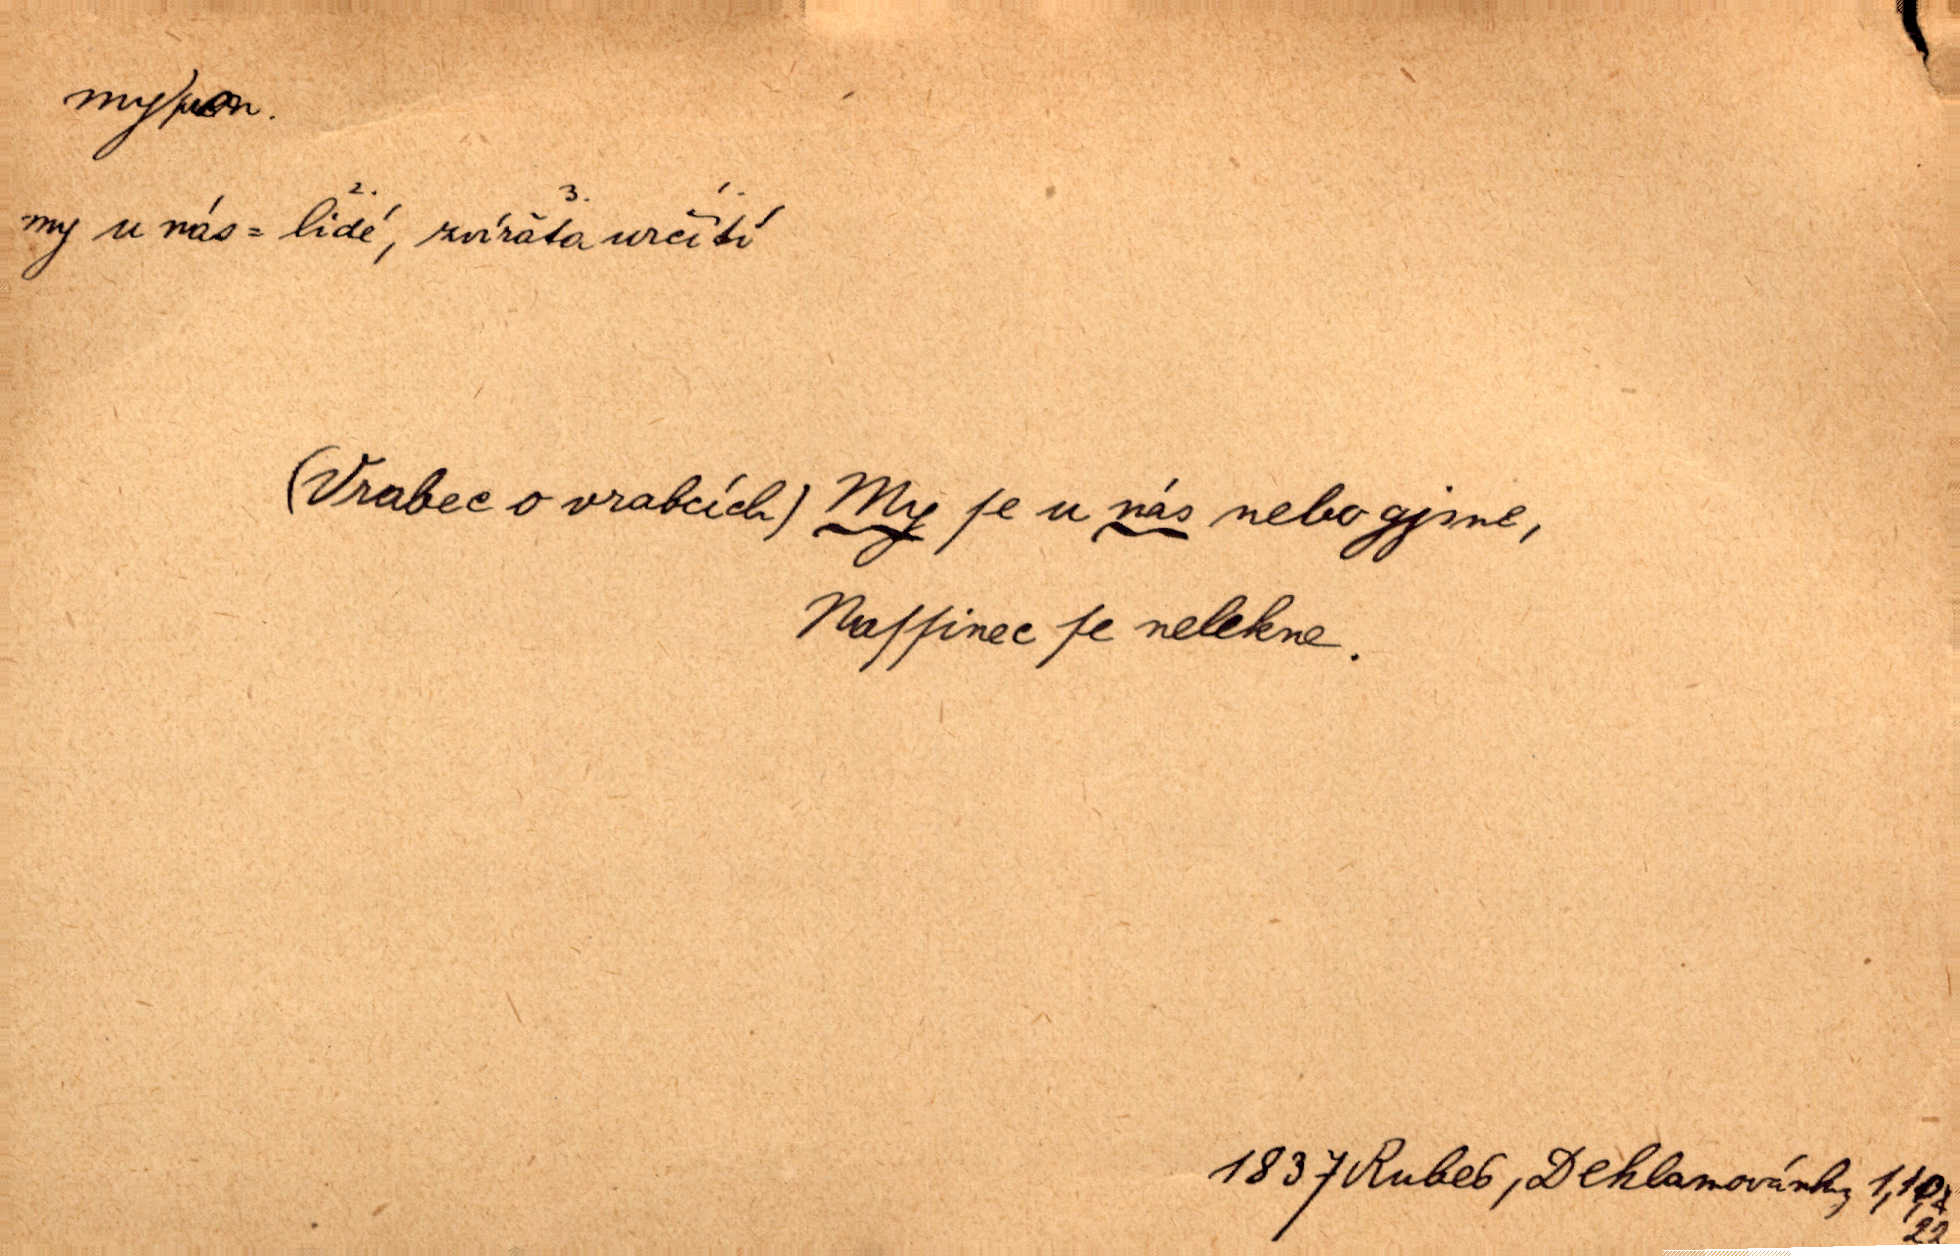 my pron.
2. 3. 1.
my u nás = lidé, zvířata určití
(Vrabec o vrabcích) My ſe u nás nebogjme,
Naſſinec ſe nelekne.
1837 Rubeš, Deklamovánky 1,
22